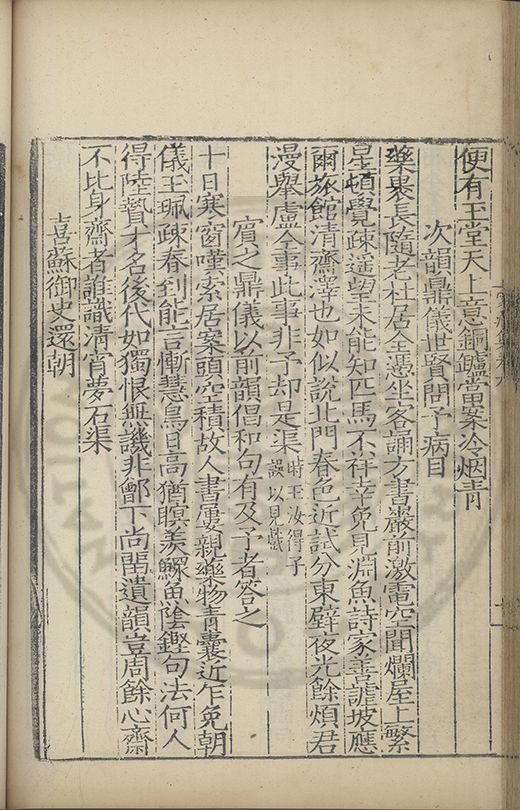 便有玉堂天上意銅鑪當案冷烟青
次韻鼎儀世賢問予病目
藥裹長隨老杜居全憑坐客誦方書巖前激電空聞爛屋上繁
星頓覺疎遥望未能知匹馬不祥幸免見淵魚詩家善謔坡應
爾旅館清齋澤也如似說北門春色近試分東壁夜光餘煩君
漫舉盧仝事此事非予却是渠
時王汝得子
誤以見戲
賓之鼎儀以前韻倡和句有及予者答之
十日寒窗嘆索居案頭空積故人書屢親藥物青囊近乍免朝
儀玉珮疎春到能言慚慧鳥日高猶瞑羨鰥魚陰鏗句法何人
得陸贄才名後代如獨恨無譏非鄶下尚閏遺韻豈周餘心齋
不比身齋者誰識清宵夢石渠
喜蘇御史還朝